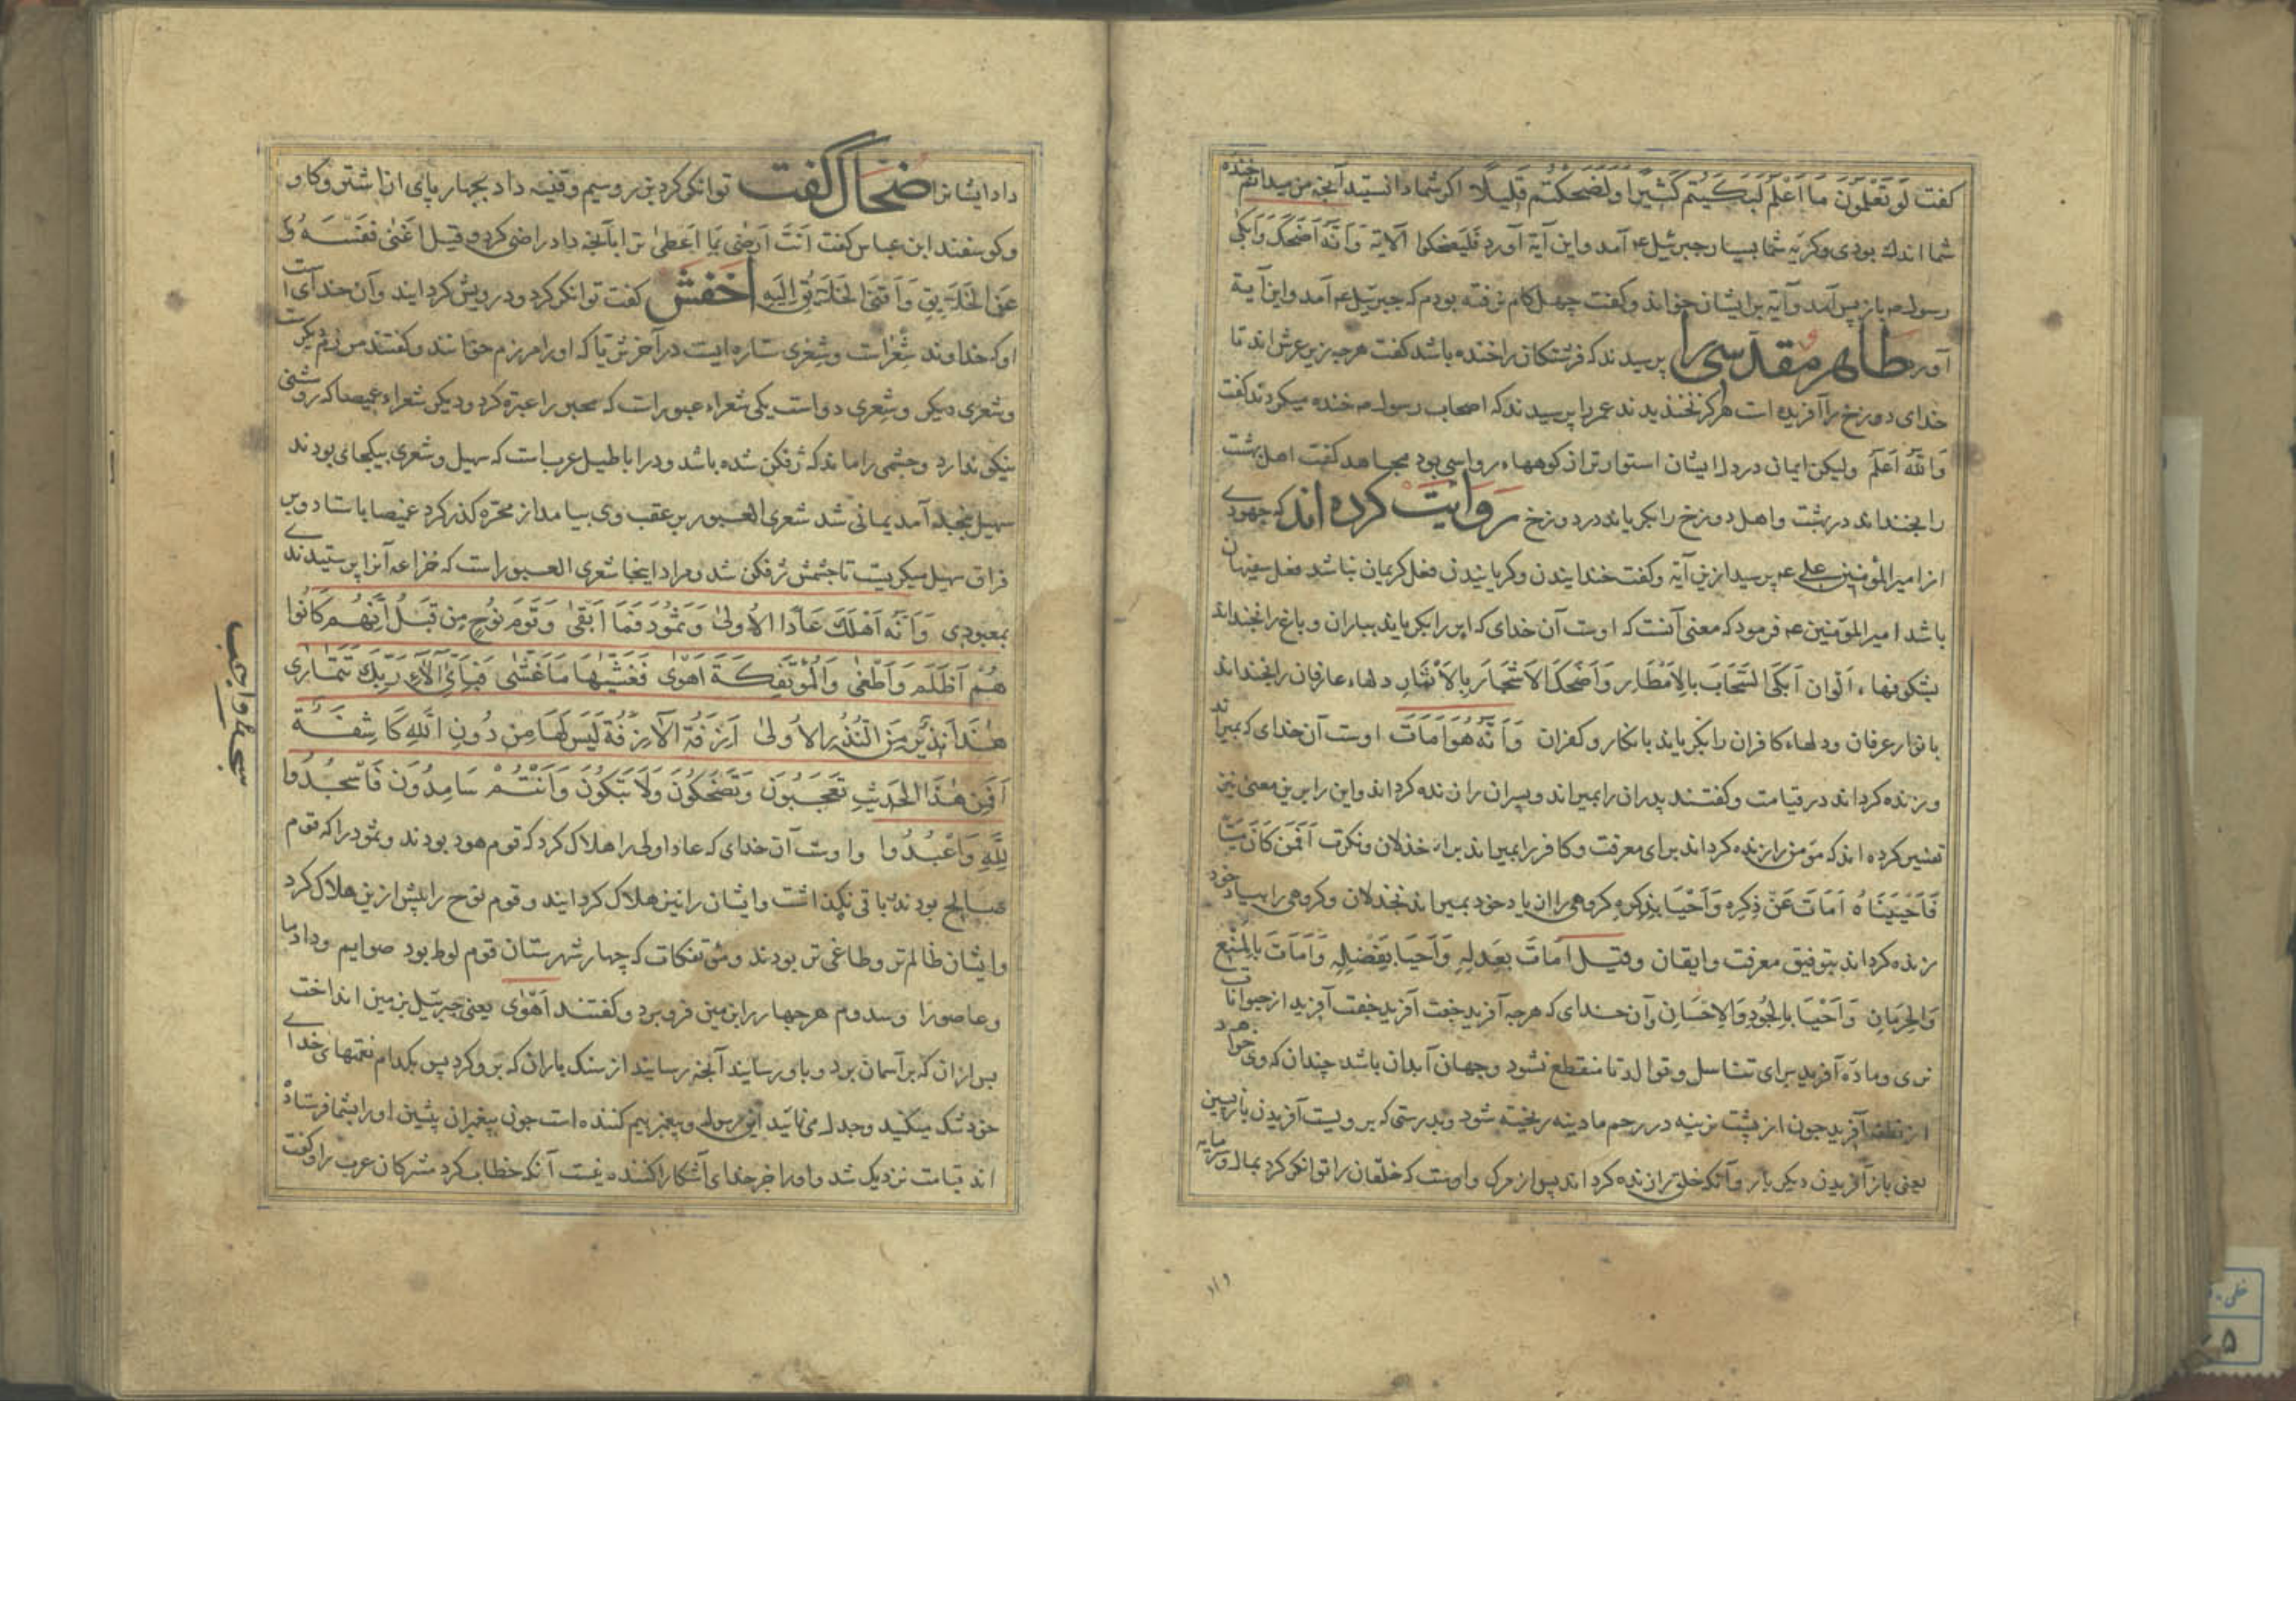 كفت لَو تَعْلَمُونَ مَا اَعْلَمُ لَبَكَيْتُم كَثِيرًا وَلَضَحِكْتُم قَلِيلًا اكر شما دانستيد آنچه من ميدانم خنده
شما اندك بودى وكريه شما بسيار جبرئيل ع آمد واين آية آورد فَليَضحَكوا الآية وَاَنَّه اَضحَكَ وَاَبكى
رسول م باز پس آمد وآية بر ايشان خواند وكفت چهل كام نرفته بودم كه جبرئيل ع آمد واين آية
آورد طاهر مقدسى را پرسيدند كه فرشتكان را خنده باشد كفت هرچه زير عرش اند تا
خداى دوزخ را آفريده است هركز نخنديدند عمر را پرسيدند كه اصحاب رسول م خنده ميكردند كفت
وَاللّه اَعلَم وليكن ايمان در دل ايشان استوارتر از كوههاء رواسى بود مجاهد كفت اهل بهشت
را بخنداند در بهشت واهل دوزخ را بكرياند در دوزخ روايت كرده اند كه جهودے
از امير المؤمنين على ع پرسيد ازين آية وكفت خندانيدن وكريانيدن فعل كريمان نباشد فعل سفيهان
باشد امير المؤمنين ع فرمود كه معنى آنست كه اوست آن خداى كه ابر را بكرياند بباران وباغ را بخنداند
بشكوفهاء الوان اَبكَى السَّحَابَ بِالاَمْطَارِ وَاَضحَكَ الاَشْجَارَ بِالاَنْمَارِ دلهاء عارفان را بخنداند
بانوار عرفان ودلهاء كافران را بكرياند بانكار وكفران وَاَنَّهُ هُوَ اَمَاتَ اوست آن خداى كه بميراند
وزنده كرداند در قيامت وكفتند پدران را بميراند وپسران را زنده كرداند واين را برين معنى نيز
تفسير كرده اند كه مؤمن را زنده كرداند براى معرفت وكافر را بميراند براى خذلان ونكرت اَفَمَن كَانَ مَيتًا
فَاَحْيَيْنَاهُ اَمَاتَ عَنْ ذِكرِه وَاَحْيَا بِذِكرِهِ كروهى را از ياد خود بميراند بخذلان وكروهى را بياد خود
زنده كرداند بتوفيق معرفت وايقان وقيل اَمَاتَ بِعَدلِهِ وَاَحيَا بِفَضلِهِ وَاَمَاتَ بِالمَنْعِ
وَالحِرمَانِ وَاَحْيَا بِالجُودِ وَالاِحْسَانِ وآن خداى كه هرچه آفريد جفت آفريد جفت آفريد از حيوانات
نرى وماده آفريد براى تناسل وتوالد تا منقطع نشود وجهان آبدان باشد چندان كه وى خواهد
از نطفه آفريد چون از پشت نرينه در رحم مادينه ريخته شود وبدرستى كه بر ويست آفريدن بازپسين
يعنى باز آفريدن ديكر بار وآنكه خلق را زنده كرداند پس از مرك واوست كه خلقان را توانكر كرد بمال وسرمايه
واد
داد ايشانرا ضحاك گفت توانكر كرد بزر وسيم وقنيه داد بچهارپاى از اشتر وكاو
وكوسفند ابن عباس كفت اَنتَ اَرضٰى بِمَا اَعطىٰ ترا بآنچه داد راضى كرد وقيل اغنى نَفْسَهُ
عَنِ الخَلَايِقِ وَاَقنَى الخَلَايِقَ اِلَيهِ اخفش كفت توانكر كرد ودرويش كردانيد وآن خداى است
اوكه خداوند شِعْرٰاست وشِعْرى ستاره ايست در آخر شب تا كه او را مرزم خوانند وكفتند مرزم ديكرست
وشعرى ديكر وشعرى دواست يكى شعراء عبوراست كه مجبره را عبره كرد وديكر شعراء غميصا كه روشنى
نيكو ندارد وچشمى را ماند كه ژفكن شده باشد ودر اباطيل عرب است كه سهيل وشعرى بيكجاى بودند
سهيل بجنبيد آمد يمانى شد شعرى العبور بر عقب وى بيامد از مجره گذر كرد غميصا باستاد ودرے
فراق سهيل ميكريست تا چشمش ژفكن شد ومراد اينجا شعرى العبور است كه خزاعه آنرا پرستيدند
بمعبودى وَاَنَّه اَهْلَكَ عَادًا الاُولىٰ وَثَمُودَ فَمَا اَبقىٰ وَقَومَ نُوحٍ مِن قَبلُ اِنَّهُم كَانُوا
هُم اَظْلَمَ وَاَطْغٰى وَالمُؤْتَفِكَةَ اَهوٰى فَغَشّٰيهَا مَا غَشّٰى فَبِاَىِّ اٰلَآءِ رَبِّكَ تَتَمَارٰى
هٰذَا نَذِيرٌ مِنَ النُّذُرِ الاُولىٰ اَزِفَةِ الآزِفَةُ لَيسَ لَهَا مِن دُونِ اللّٰهِ كَاشِفَةٌ
اَفَمِن هٰذَا الحَدِيثِ تَعجَبُونَ وَتَضحَكُونَ وَلَا تَبكُونَ وَاَنتُمْ سَامِدُونَ فَاسْجُدُوا
لِلّٰهِ وَاعْبُدُوا واوست آن خداى كه عاد اولى را هلاك كرد كه قوم هود بودند وثمود را كه قوم
صالح بودند باقى نكذاشت وايشان را نيز هلاك كردانيد وقوم نوح را پيش ازين هلاك كرد
وايشان ظالم تر وطاغى تر بودند ومؤتفكات كه چهار شهرستان قوم لوط بود صوايم ودادما
وعاصورا وسدوم هر چهار را بزمين فرو برد وكفتند اَهْوٰى يعنى جبرئيل بزمين انداخت
پس ازان كه بر آسمان برد وباو رسانيد آنچه رسانيد از سنك باران كه بروكرد پس بكدام نعمتهاى خداے
خود شك ميكنيد وجدل مى نمائيد اين رسول وپيغمبر بيم كننده است چون پيغمبران پيشين اورا بشما فرستاده
اند قيامت نزديك شد واورا جز خداى آشكارا كننده نيست آنكه خطاب كرد مشركان عرب را وكفت
سجدهٔ واجب